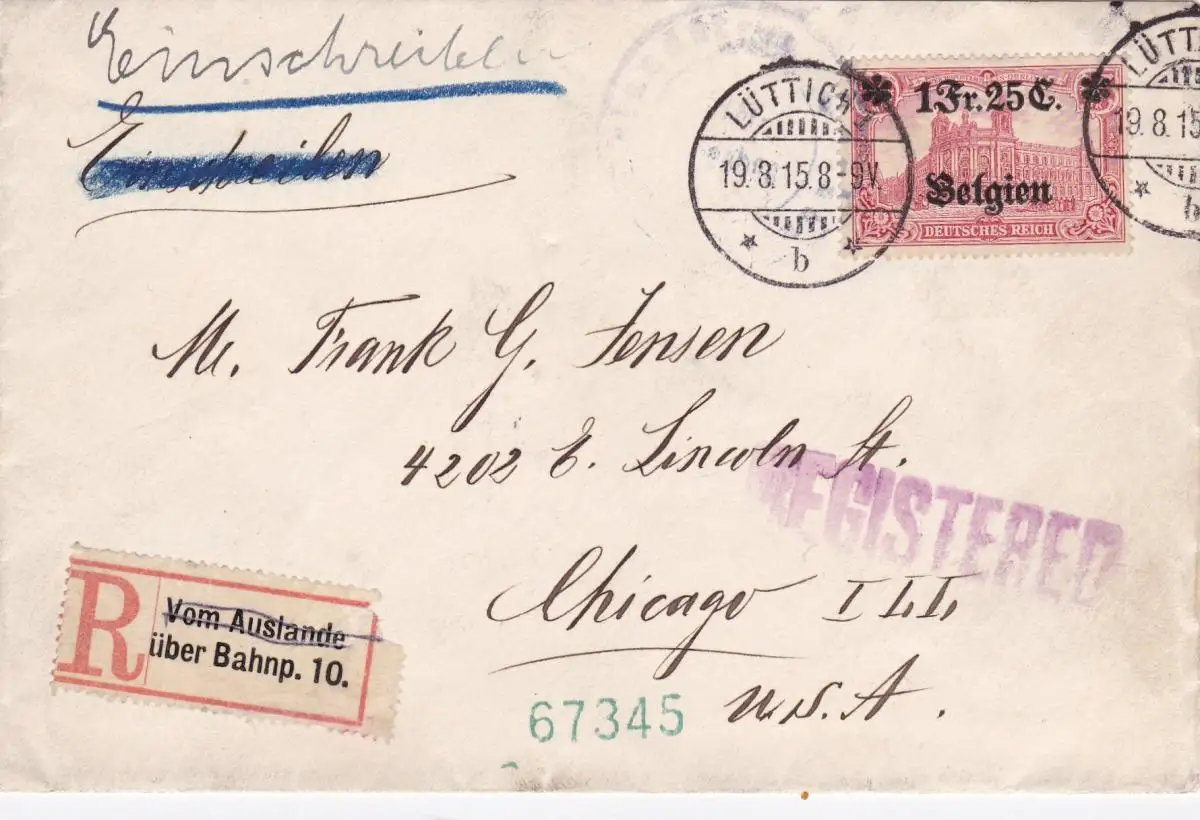 Einschreiben
Einschreiben
LÜTTICH
19.8.15.8-9V.
b
1Fr.25C.
Belgien
DEUTSCHES REICH
LÜTTI
19.8.15
b
Mr. Frank G. Jensen
4202 E. Lincoln St.
REGISTERED
Chicago ILL
U.S.A.
R
Vom Auslande
über Bahnp. 10.
67345